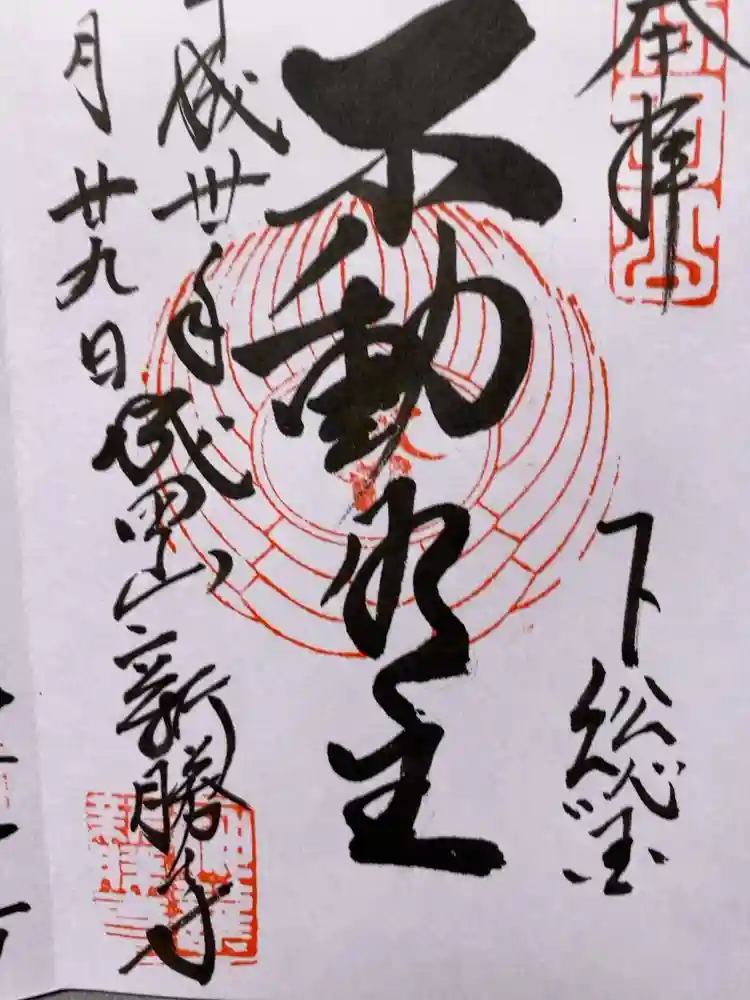 奉拝
下総国
不動明王
平成卅年
成田山新勝寺
月廿九日